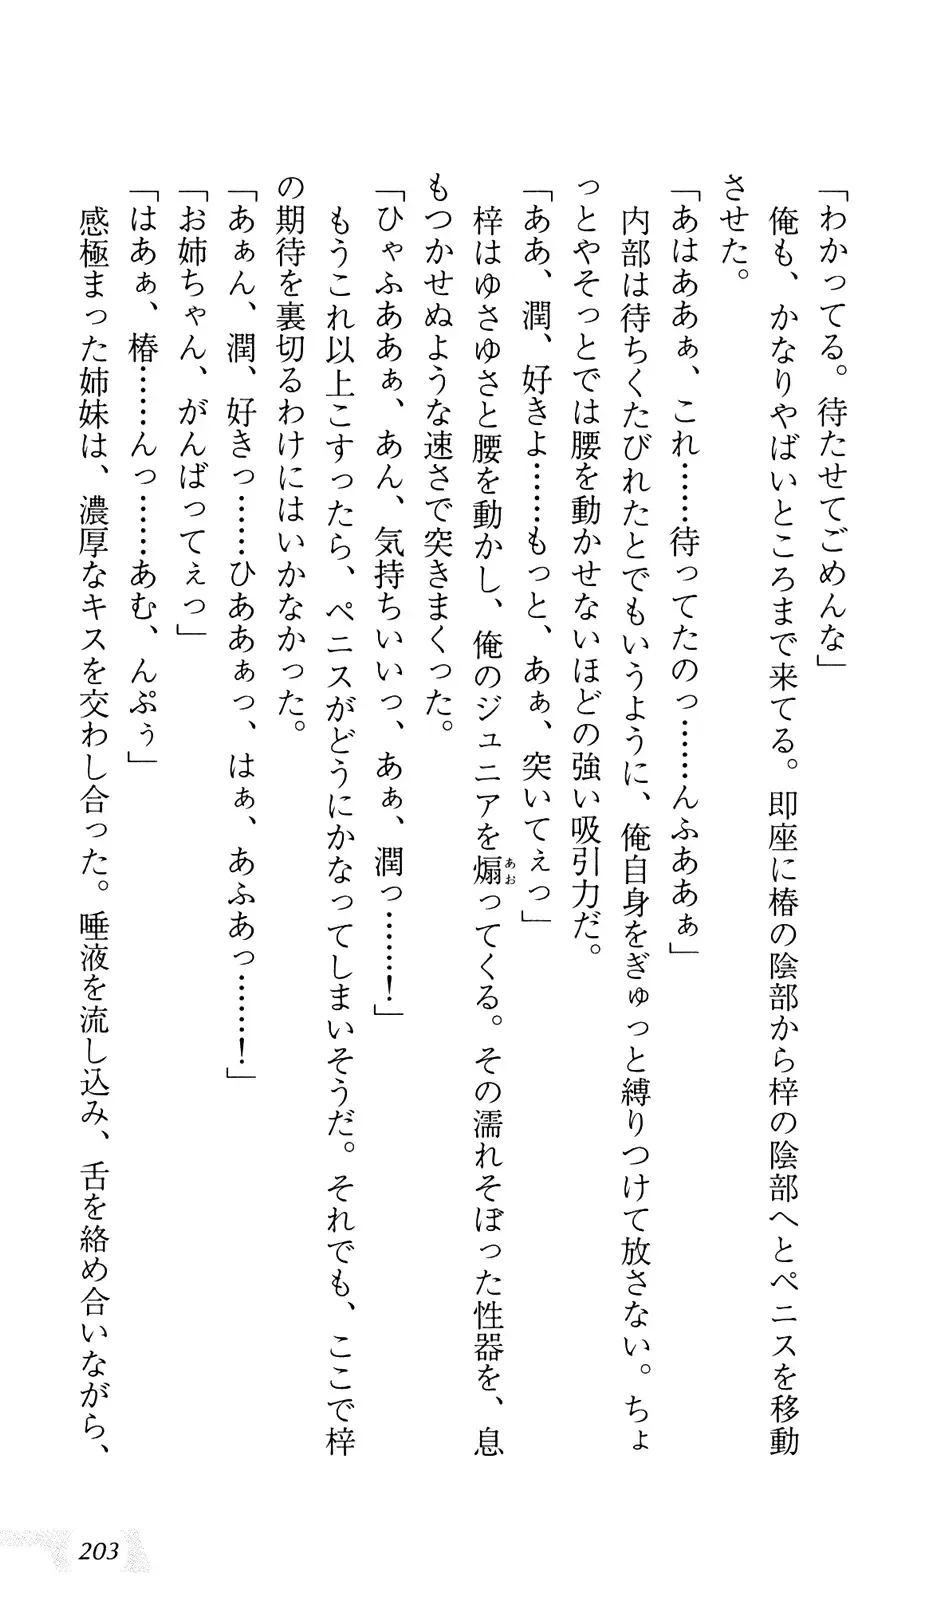 「わかってる。待たせてごめんな」
俺も、かなりやばいところまで来てる。即座に椿の陰部から梓の陰部へとペニスを移動
させた。
「あはああぁ、これ……待ってたのっ……んふああぁ」
内部は待ちくたびれたとでもいうように、俺自身をぎゅっと縛りつけて放さない。ちょ
っとやそっとでは腰を動かせないほどの強い吸引力だ。
「ああ、潤、好きよ……もっと、あぁ、突いてぇっ」
梓はゆさゆさと腰を動かし、俺のジュニアを煽ってくる。その濡れそぼった性器を、息
あお
もつかせぬような速さで突きまくった。
「ひゃふああぁ、あん、気持ちいいっ、あぁ、潤っ……！」
もうこれ以上こすったら、ペニスがどうにかなってしまいそうだ。それでも、ここで梓
の期待を裏切るわけにはいかなかった。
「あぁん、潤、好きっ……ひああぁっ、はぁ、あふあっ……！」
「お姉ちゃん、がんばってぇっ」
「はあぁ、椿……んっ……あむ、んぷぅ」
感極まった姉妹は、濃厚なキスを交わし合った。唾液を流し込み、舌を絡め合いながら、
203